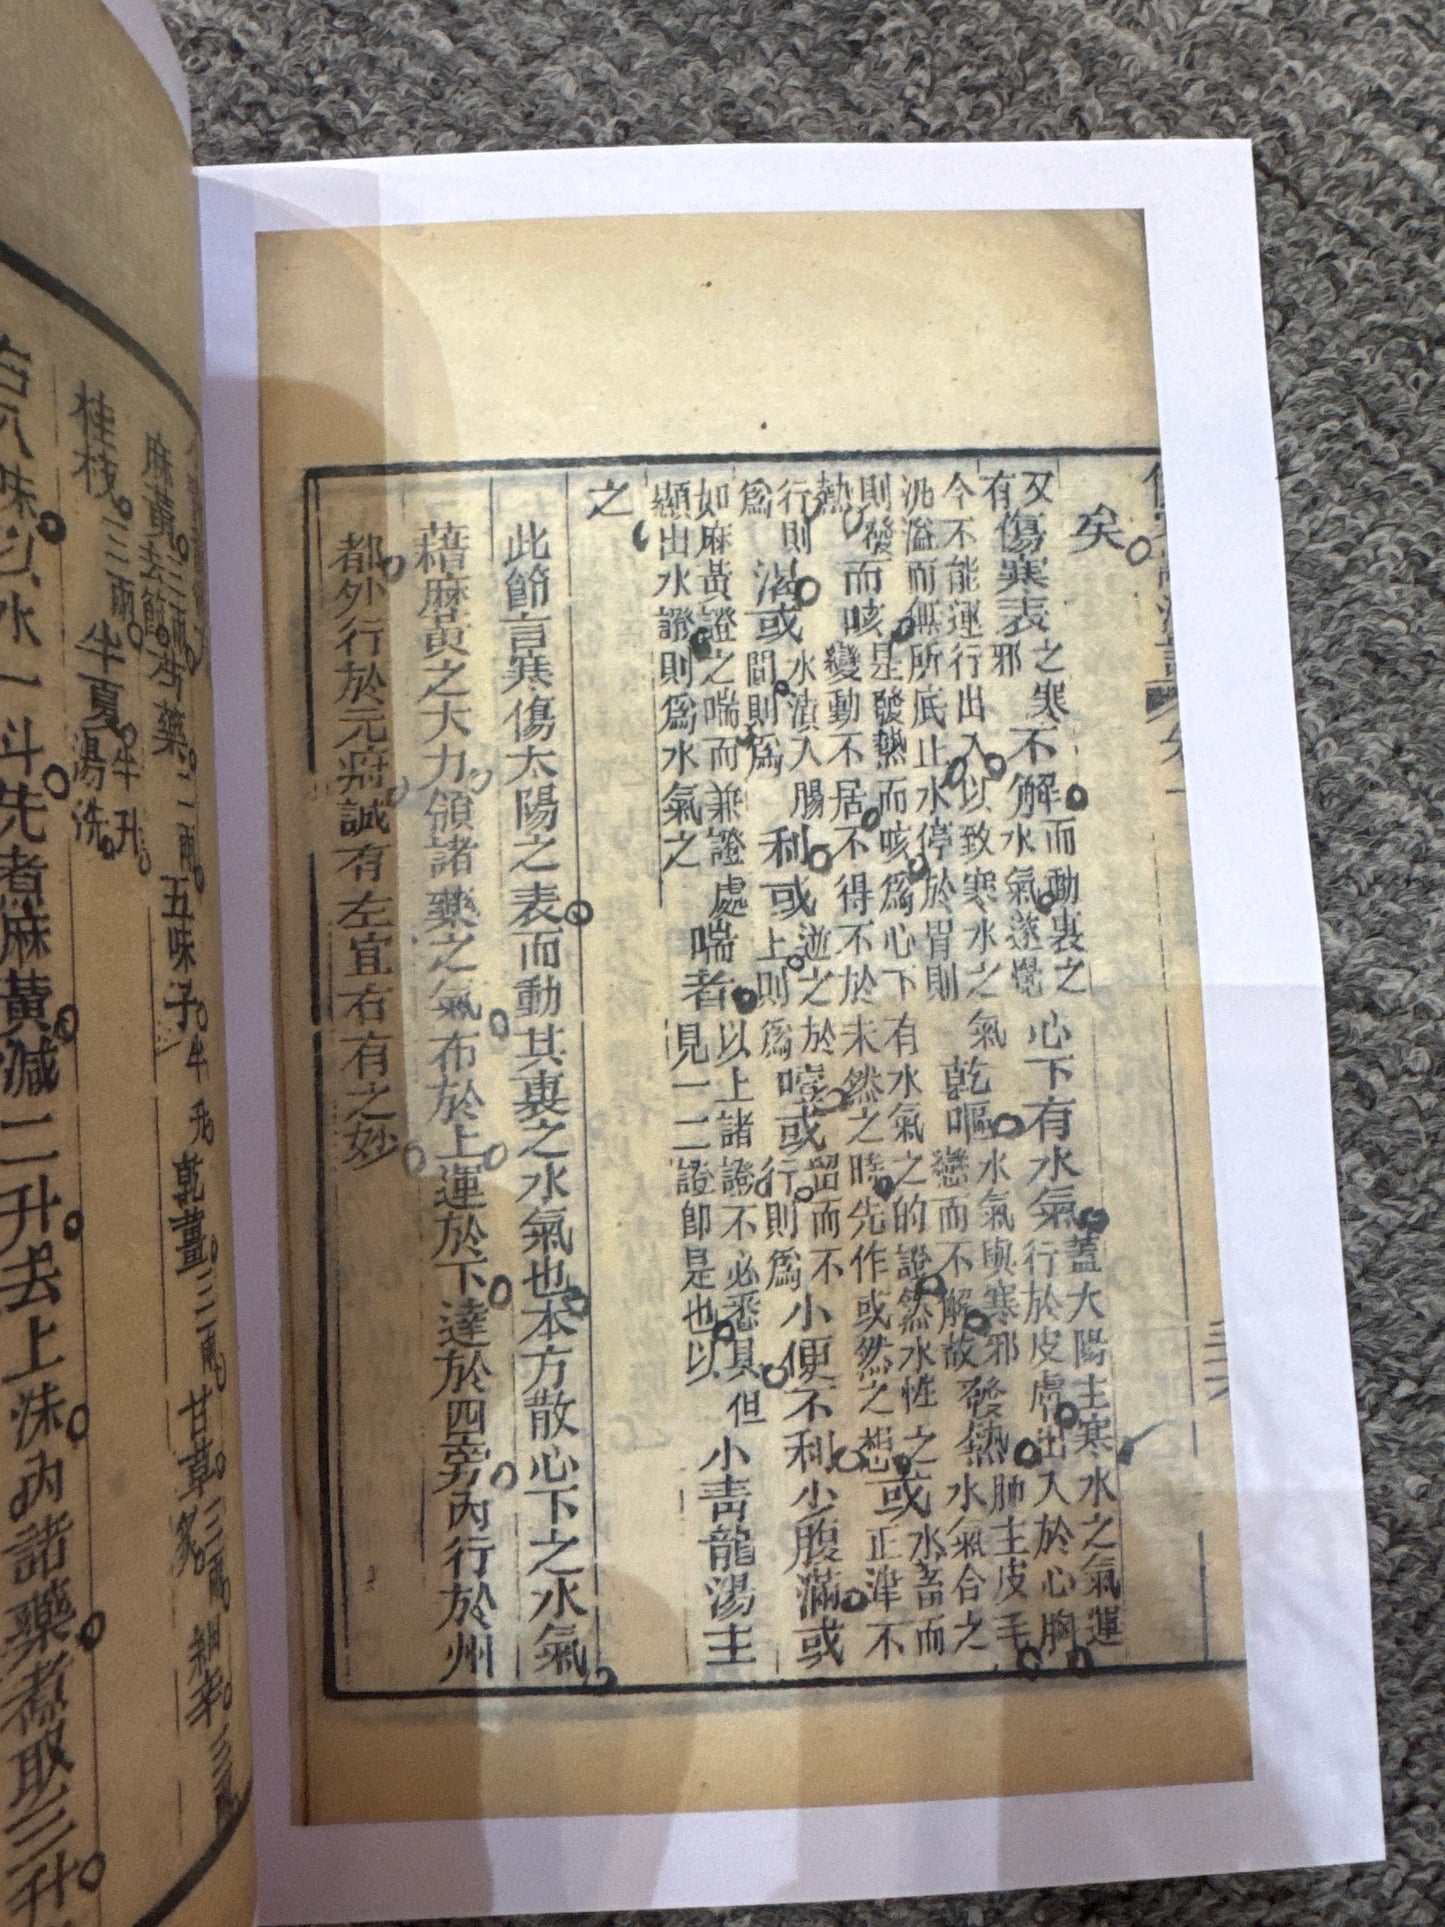 矣
又有傷寒表之寒邪不解而動裏之水氣遂覺心下有水氣蓋太陽主寒水之氣運行於皮膚出入於心胸
今不能運行出入以致寒水之氣泛溢而無所底止水停於胃則乾嘔水氣與寒邪戀而不解故發熱肺主皮毛水氣合之
則發熱而咳是發熱而咳為心下有水氣之的證然水性變動不居不得不於未然之時先作或然之想或水畜而正津不
行則為渴或水漬入腸間則為利或逆之於上則為噎或留而不行則為小便不利少腹滿或
如麻黃證之喘而兼證處顯出水證則為水氣之喘者以上諸證不必悉具但見一二證即是也以小青龍湯主
之
此節言寒傷太陽之表而動其裏之水氣也本方散心下之水氣
藉麻黃之大力領諸藥之氣布於上運於下達於四旁內行於州
都外行於元府誠有左宜右有之妙
麻黃去節三兩芍藥三兩五味子半升乾薑三兩甘草炙三兩細辛三兩
桂枝三兩半夏半升湯洗
右八味以水一斗先煮麻黃減二升去上沫內諸藥煮取三升